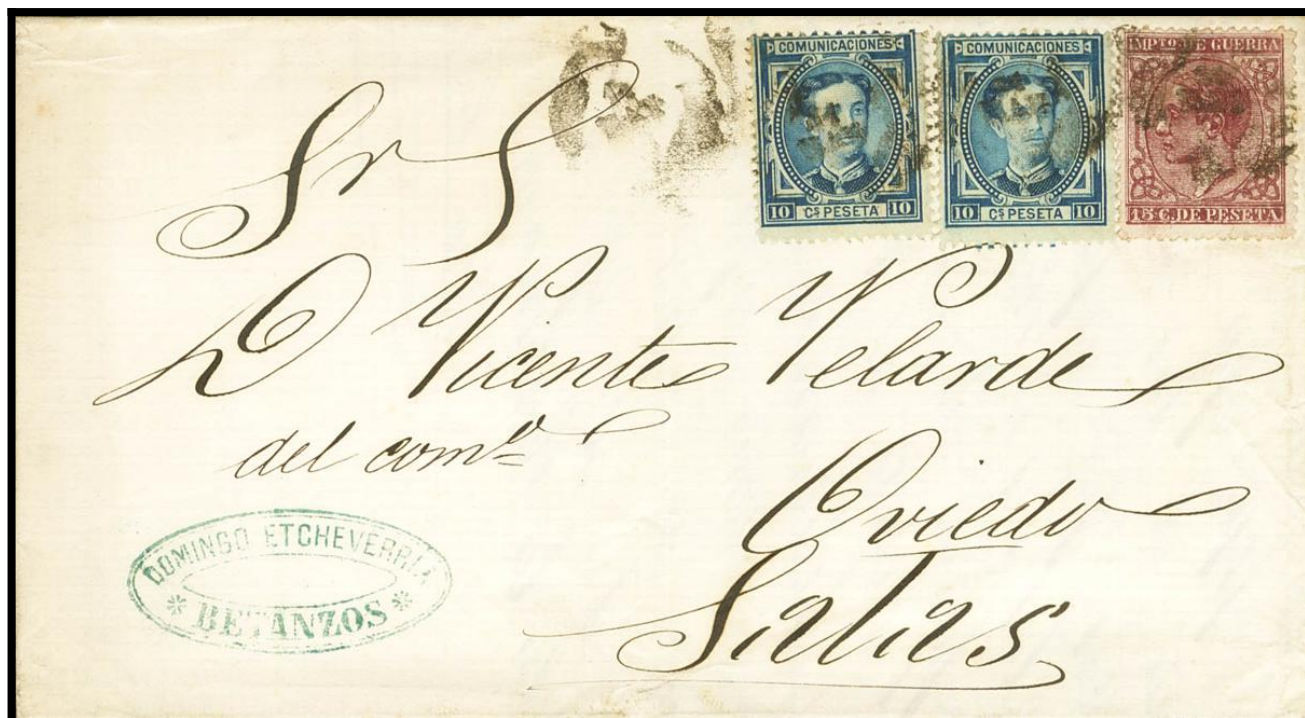 COMUNICACIONES
10 Cs PESETA 10
COMUNICACIONES
10 Cs PESETA 10
IMPTO DE GUERRA
15 C. DE PESETA
Sr
D Vicente Velarde
del comº
Oviedo
Salas
DOMINGO ETCHEVERRIA
* BETANZOS *